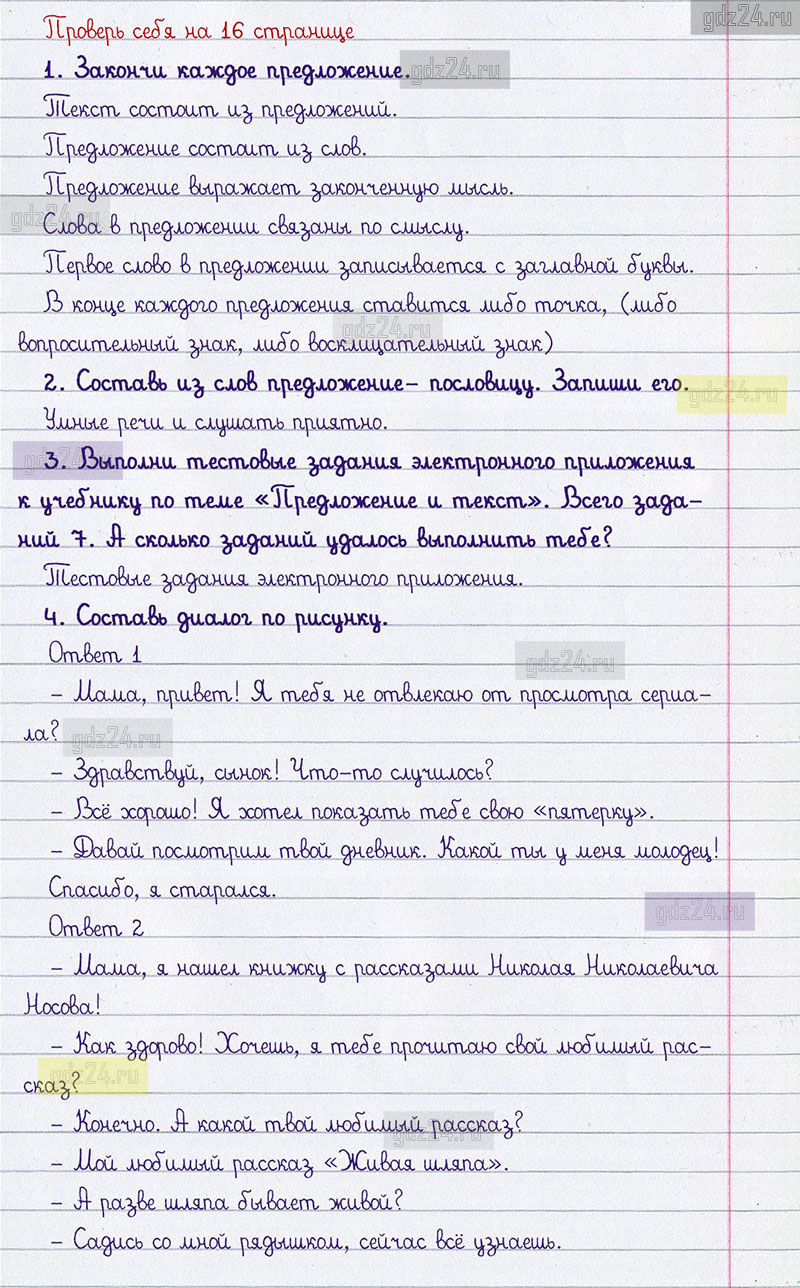 gdz24.ru
Проверь себя на 16 странице
1. Закончи каждое предложение.
gdz24.ru
Текст состоит из предложений.
Предложение состоит из слов.
Предложение выражает законченную мысль.
gdz24.ru
Слова в предложении связаны по смыслу.
Первое слово в предложении записывается с заглавной буквы.
В конце каждого предложения ставится либо точка, (либо
gdz24.ru
вопросительный знак, либо восклицательный знак)
2. Составь из слов предложение– пословицу. Запиши его.
gdz24.ru
Умные речи и слушать приятно.
gdz24.ru
3. Выполни тестовые задания электронного приложения
к учебнику по теме «Предложение и текст». Всего зада–
ний 7. А сколько заданий удалось выполнить тебе?
Тестовые задания электронного приложения.
4. Составь диалог по рисунку.
Ответ 1
gdz24.ru
– Мама, привет! Я тебя не отвлекаю от просмотра сериа–
ла?
gdz24.ru
– Здравствуй, сынок! Что–то случилось?
– Всё хорошо! Я хотел показать тебе свою «пятерку».
– Давай посмотрим твой дневник. Какой ты у меня молодец!
Спасибо, я старался.
gdz24.ru
Ответ 2
– Мама, я нашел книжку с рассказами Николая Николаевича
Носова!
– Как здорово! Хочешь, я тебе прочитаю свой любимый рас–
gdz24.ru
сказ?
– Конечно. А какой твой любимый рассказ?
gdz24.ru
– Мой любимый рассказ «Живая шляпа».
– А разве шляпа бывает живой?
– Садись со мной рядышком, сейчас всё узнаешь.